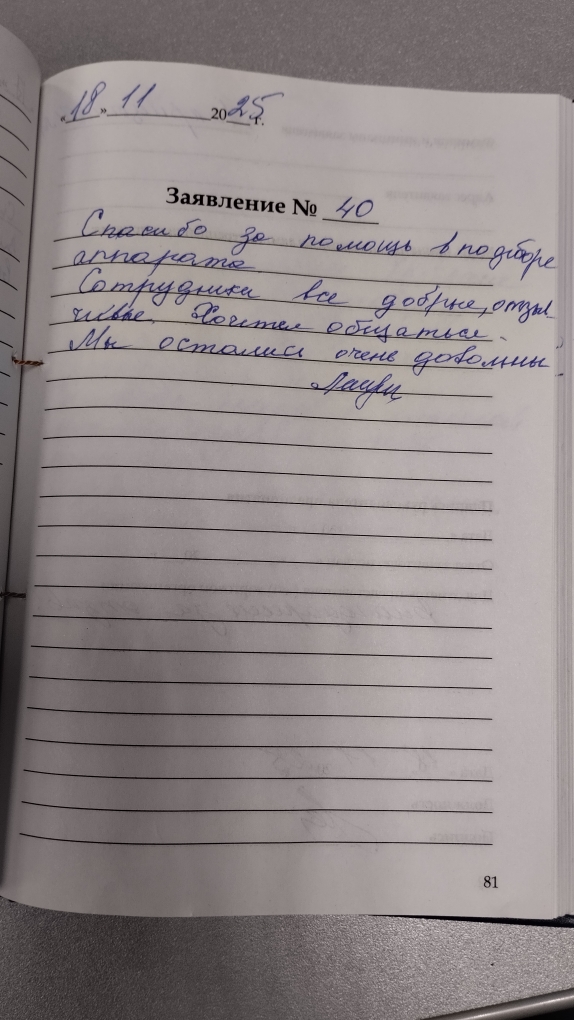 «18» 11 2025 г.
Заявление № 40
Спасибо за помощь в подборе
аппарата
Сотрудники все добрые, отзы-
чивые. Хочется общаться.
Мы остались очень довольны
81